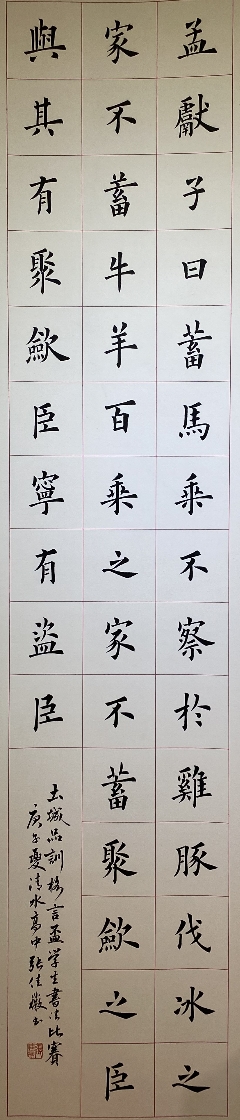 孟獻子曰蓄馬乘不察於雞豚伐冰之
家不蓄牛羊百乘之家不蓄聚歛之臣
與其有聚歛臣寧有盜臣
土城品訓格言盃學生書法比賽
庚子夏清水高中張佳